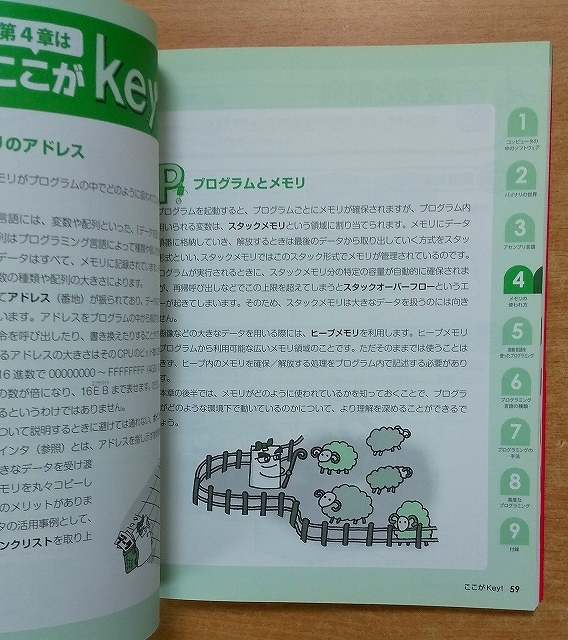 第4章は
ここが key
リのアドレス
モリがプログラムの中でどのように扱われ
言語には、変数や配列といった、「データを
列はプログラミング言語によって種類や扱い
データはすべて、メモリに記録されています
数の種類や配列の大きさによります。
てアドレス（番地）が振られており、データ
います。アドレスをプログラムの中から指定
令を呼び出したり、書き換えたりすること
るアドレスの大きさはそのCPUのビット数
16進数で00000000～FFFFFFFF
の数が倍になり、16EBまで表せます。
るというわけではありません。
ついて説明するときに避けては通れない
インタ（参照）とは、アドレスを指し示す
きなデータを受け渡
モリを丸々コピーし
のメリットがありま
タの活用事例として、
ンクリストを取り上
プログラムとメモリ
プログラムを起動すると、プログラムごとにメモリが確保されますが、プログラム内
用いられる変数は、スタックメモリという領域に割り当てられます。メモリにデータ
順番に格納していき、解放するときは最後のデータから取り出していく方式をスタッ
形式といい、スタックメモリではこのスタック形式でメモリが管理されているのです。
ログラムが実行されるときに、スタックメモリ分の特定の容量が自動的に確保されま
が、再帰呼び出しなどでこの上限を超えてしまうとスタックオーバーフローというエ
ーが起きてしまいます。そのため、スタックメモリは大きなデータを扱うのには向き
せん。
画像などの大きなデータを用いる際には、ヒープメモリを利用します。ヒープメモリ
プログラムから利用可能な広いメモリ領域のことです。ただそのままでは使うことは
きず、ヒープ内のメモリを確保／解放する処理をプログラム内で記述する必要があり
す。
本章の後半では、メモリがどのように使われているかを知っておくことで、プログラ
がどのような環境下で動いているのかについて、より理解を深めることができるで
ょう。
1
コンピュータの
中のソフトウェア
2
バイナリの世界
3
アセンブリ言語
4
メモリの
使われ方
5
高級言語を
使ったプログラミング
6
プログラミング
言語の種類
7
プログラミングの
手法
8
高度な
プログラミング
9
付録
ここが Key! 59